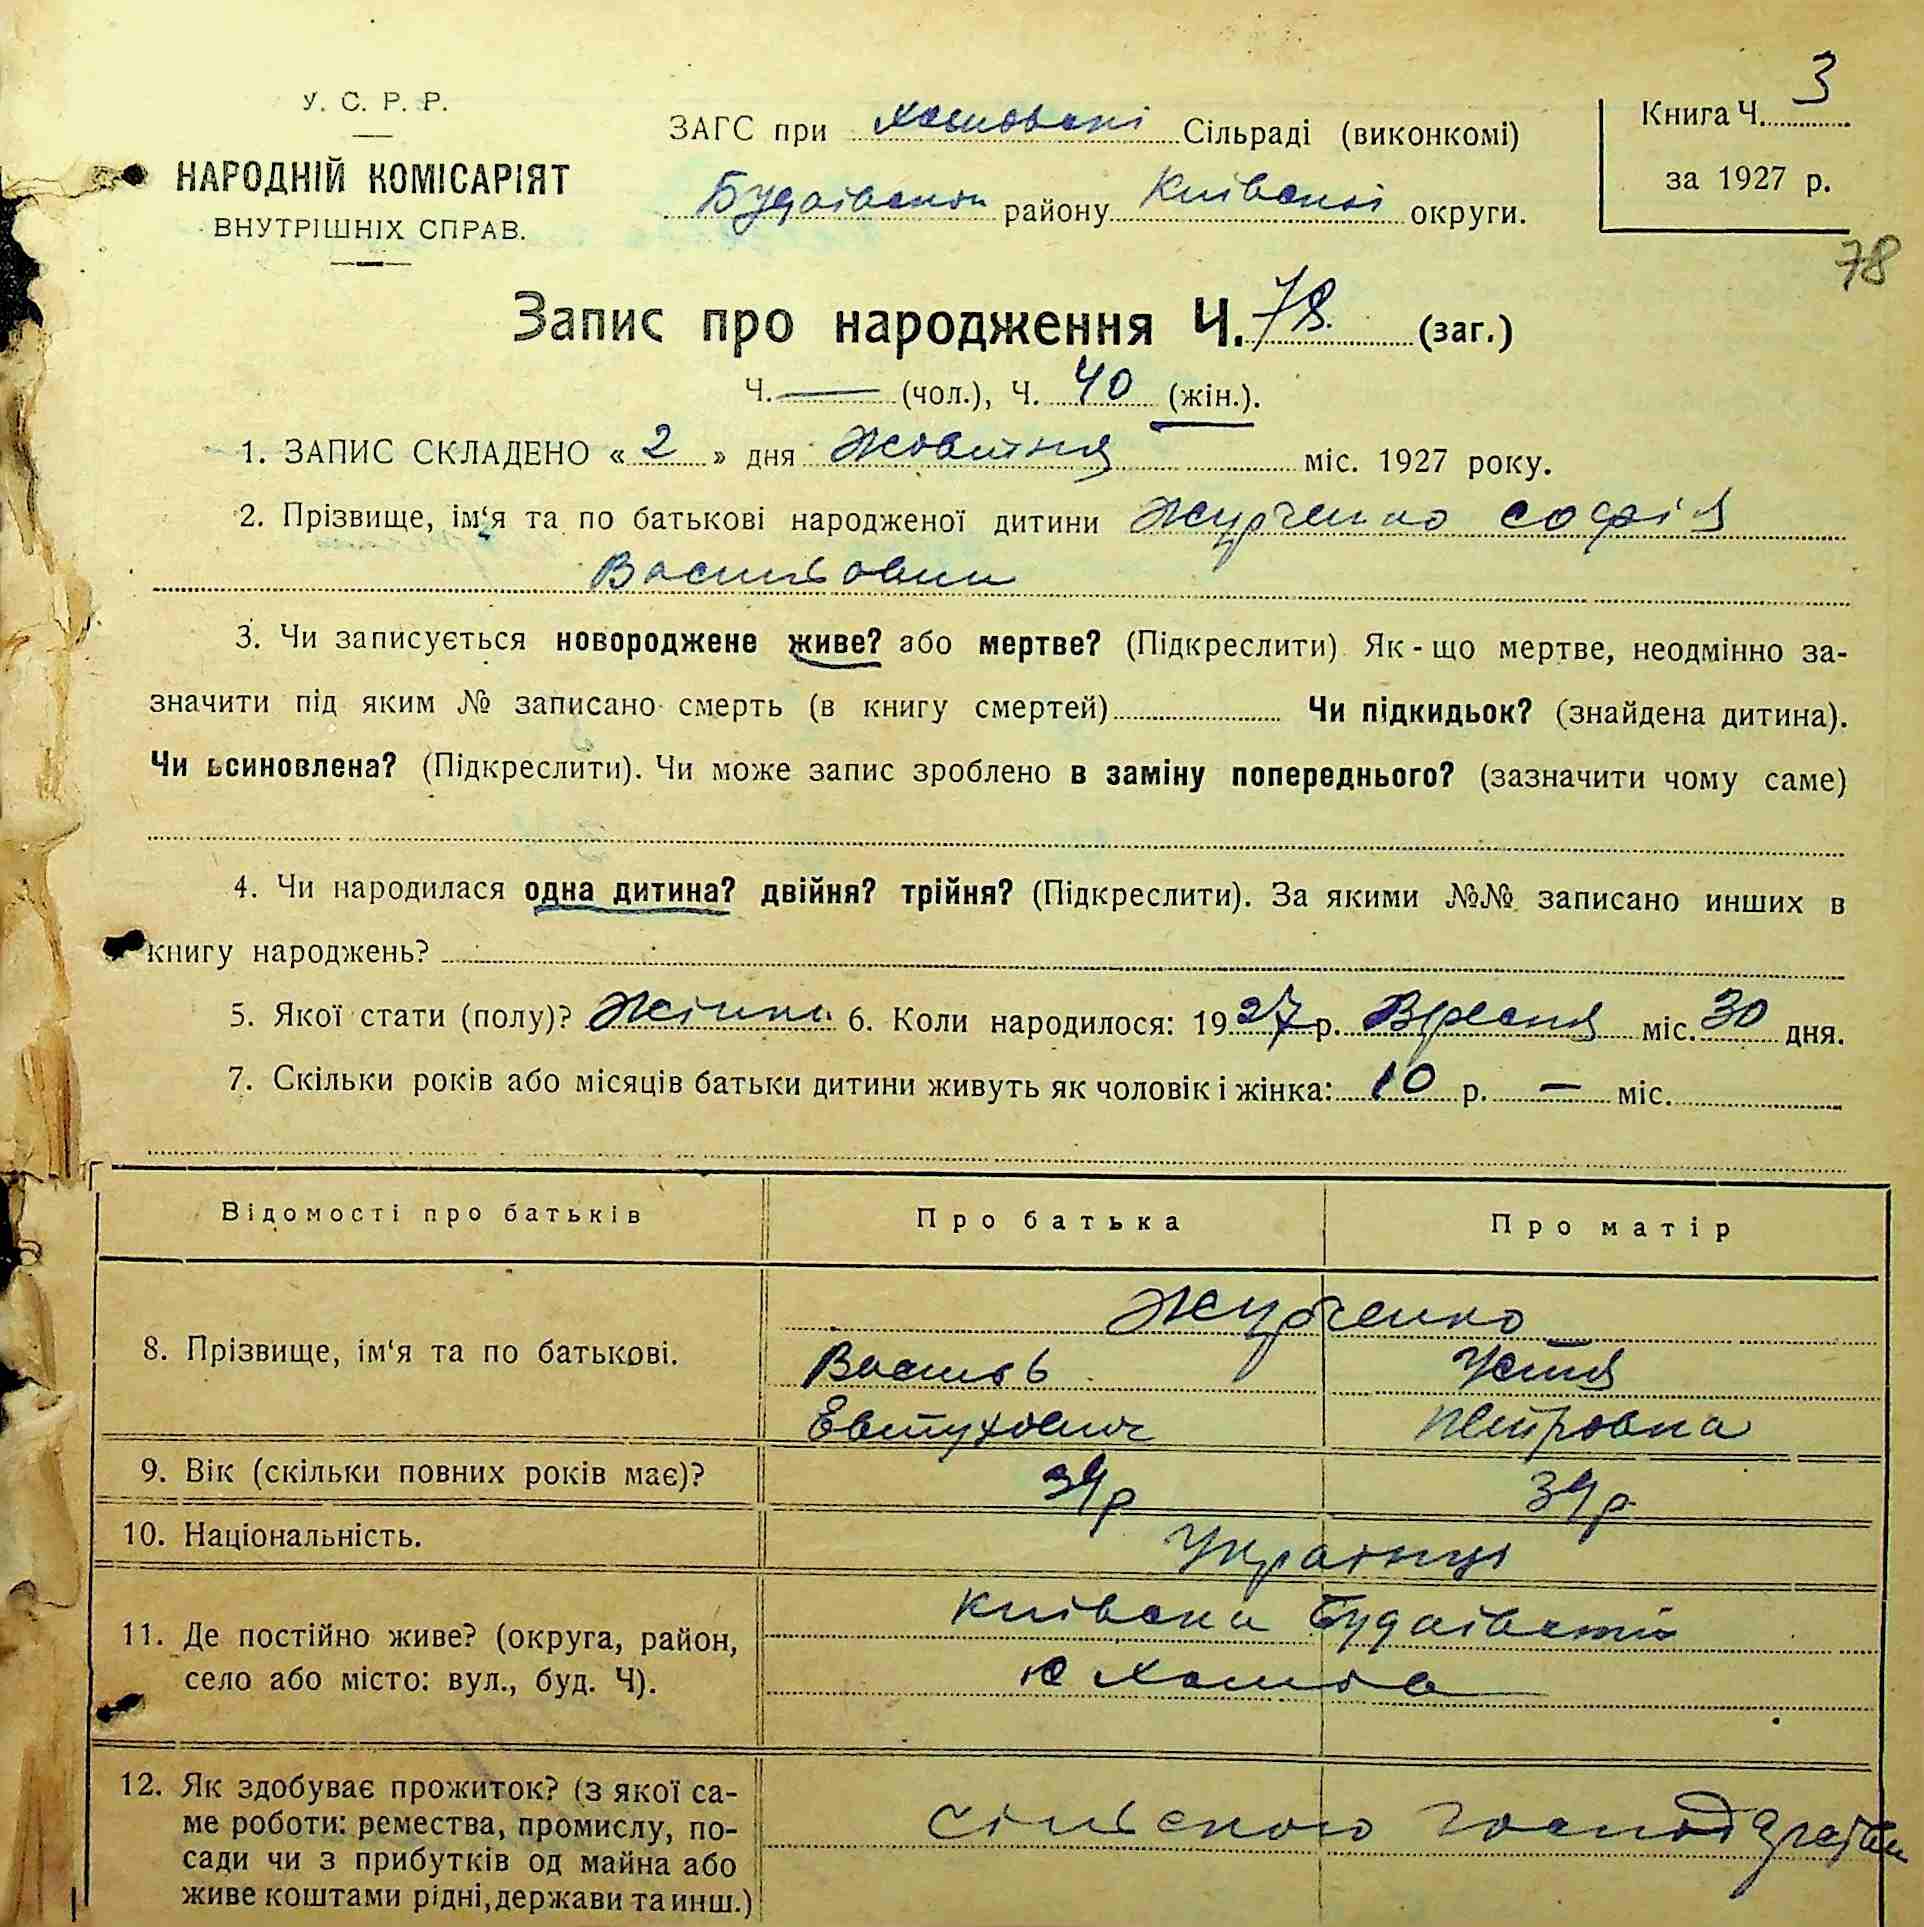 У. С. Р. Р.
НАРОДНІЙ КОМІСАРІЯТ
ВНУТРІШНІХ СПРАВ.
ЗАГС при Хотовскі Сільраді (виконкомі)
Будаївськ району Київскої округи.
Книга Ч. 3
за 1927 р.
78
Запис про народження Ч. 78. (заг.)
Ч. — (чол.), Ч. 40 (жін.).
1. ЗАПИС СКЛАДЕНО « 2 » дня Жовтня міс. 1927 року.
2. Прізвище, ім‘я та по батькові народженої дитини Журченко Софія
Васильовни
3. Чи записується новороджене живе? або мертве? (Підкреслити). Як - що мертве, неодмінно за-
значити під яким № записано смерть (в книгу смертей) Чи підкидьок? (знайдена дитина).
Чи всиновлена? (Підкреслити). Чи може запис зроблено в заміну попереднього? (зазначити чому саме)
4. Чи народилася одна дитина? двійня? трійня? (Підкреслити). За якими №№ записано инших в
книгу народжень?
5. Якої стати (полу)? Жіноч. 6. Коли народилося: 1927 р. Вресня міс. 30 дня.
7. Скільки років або місяців батьки дитини живуть як чоловік і жінка: 10 р. — міс.
Відомості про батьків Про батька Про матір
8. Прізвище, ім‘я та по батькові. Журченко
Василь Устя
Евтухович Петровна
9. Вік (скільки повних років має)? 34р 34р
10. Національність. Українці
11. Де постійно живе? (округа, район, Київска Будаївський
село або місто: вул., буд. Ч). Хотов
12. Як здобуває прожиток? (з якої са-
ме роботи: ремества, промислу, по- сільского господарства
сади чи з прибутків од майна або
живе коштами рідні, держави та инш.)